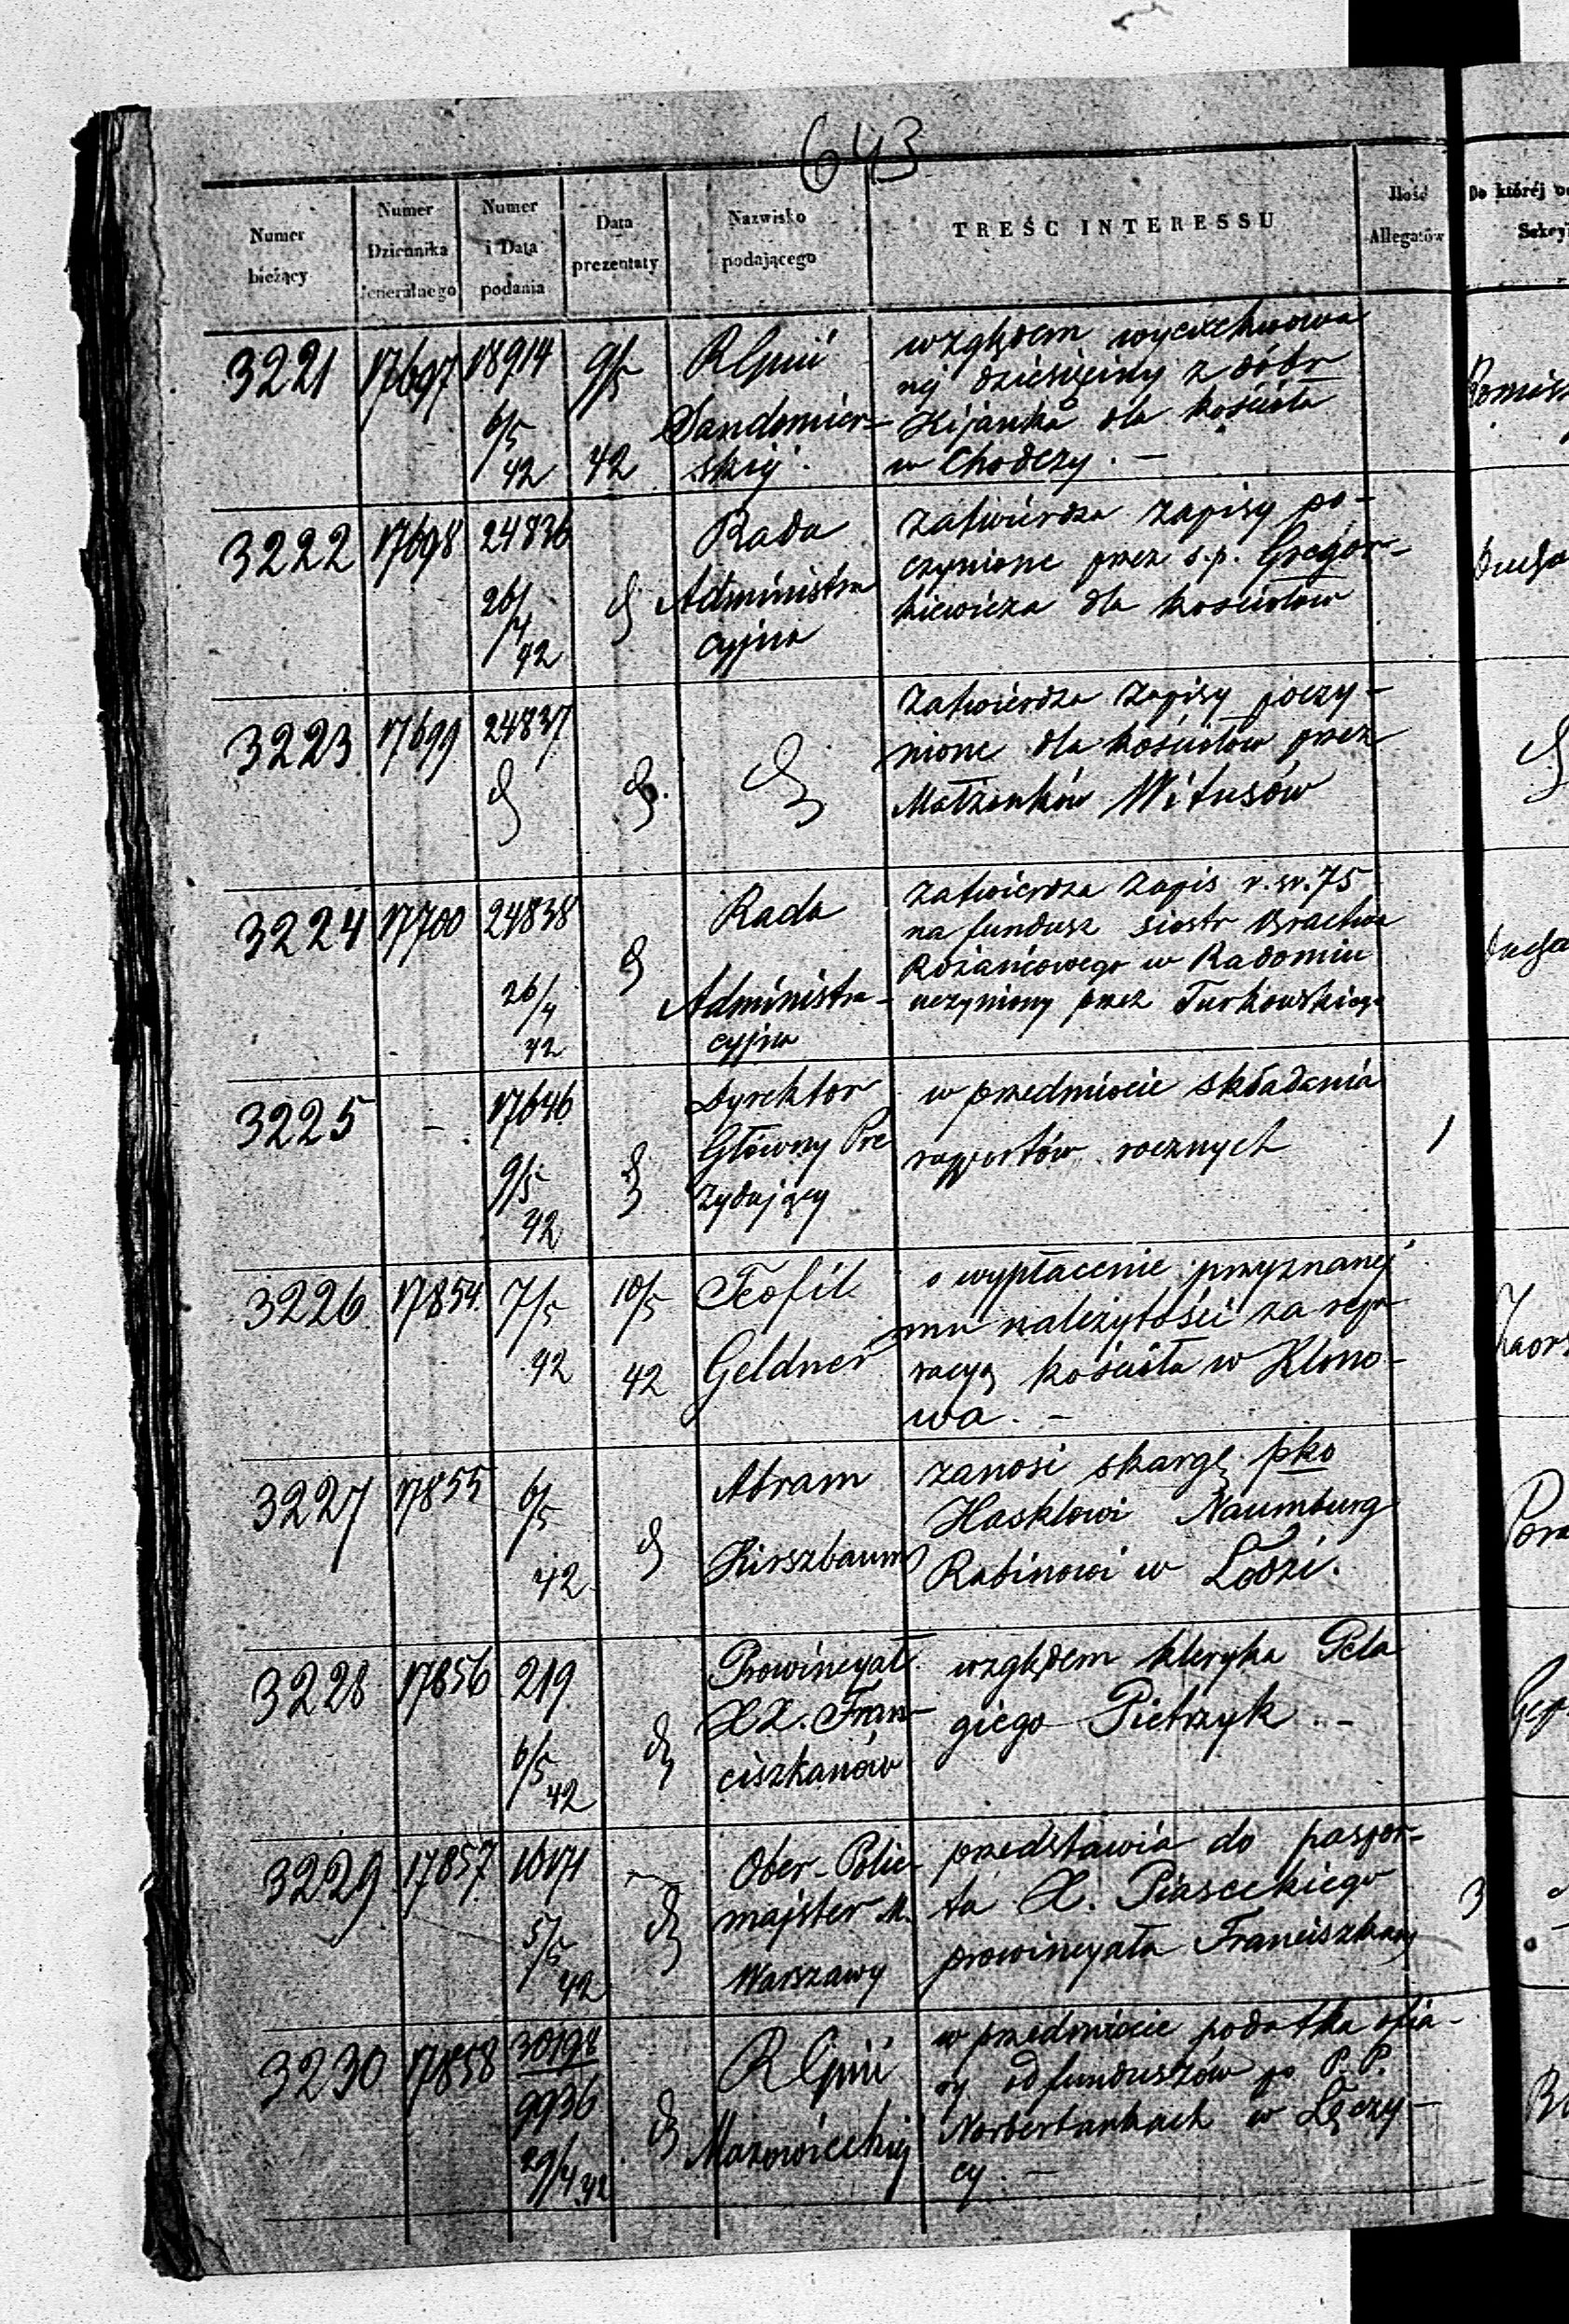 643
Numer bieżący
Numer Dziennika Jeneralnego
Numer i Data podania
Data prezentaty
Nazwisko podającego
TREŚĆ INTERESSU
Ilość Allegatów
Do któréj
3221 17697 18914 9/5 względem wyexekwowa
6/5 nej dziesięciny z dóbr
42 42 Sandomier- Kijanka dla kościoła
skiej. w Chodczy. —
3222 17698 24836 Rada zatwierdza zapisy po-
26/4 Administra czynione przez s.p. Gregor-
42 cyjna kiewicza dla kościołów
3223 17699 24837 zatwierdza zapisy poczy-
nione dla kościołów przez
Małżonków Witusów
3224 17700 24838 Rada zatwierdza zapis r. sr. 75
na fundusz siostr Bractwa
26/4 Różańcowego w Radomiu
42 Administra- uczyniony przez Turkowskiego
cyjna
3225 - 17646 Dyrektor w przedmiocie składania
9/5 Główny Pre rapportów rocznych 1
42 zydujący
3226 17854 7/5 10/5 Teofil o wypłacenie przyznanej
42 42 Geldner mu należytości za repa
racyą kościoła w Klono-
wa. —
3227 17855 6/5 Abram zanosi skargę pko
42 Kirszbaum Hasklowi Naumburg
Rabinowi w Łodzi.
3228 17856 219 Prowincyał względem kleryka Pela
6/5 XX. Fran- giego Pietrzyk. —
42 ciszkanów
3229 17857 Ober-Polic- przedstawia do paszpor-
5/5 majster M. ta X. Piaseckiego 3
42 Warszawy prowincyała Franciszkan
3230 17858 30198 w przedmiocie podatku ofia-
9936 ry od funduszów po P.P.
29/4 42 Mazowieckiej Norbertankach w Łęczy-
cy. —